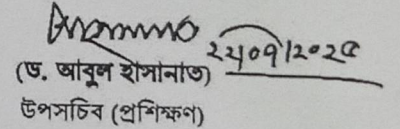 ২২/০৭/২০২৫
(ড. আবুল হাসানাত)
উপসচিব (প্রশিক্ষণ)